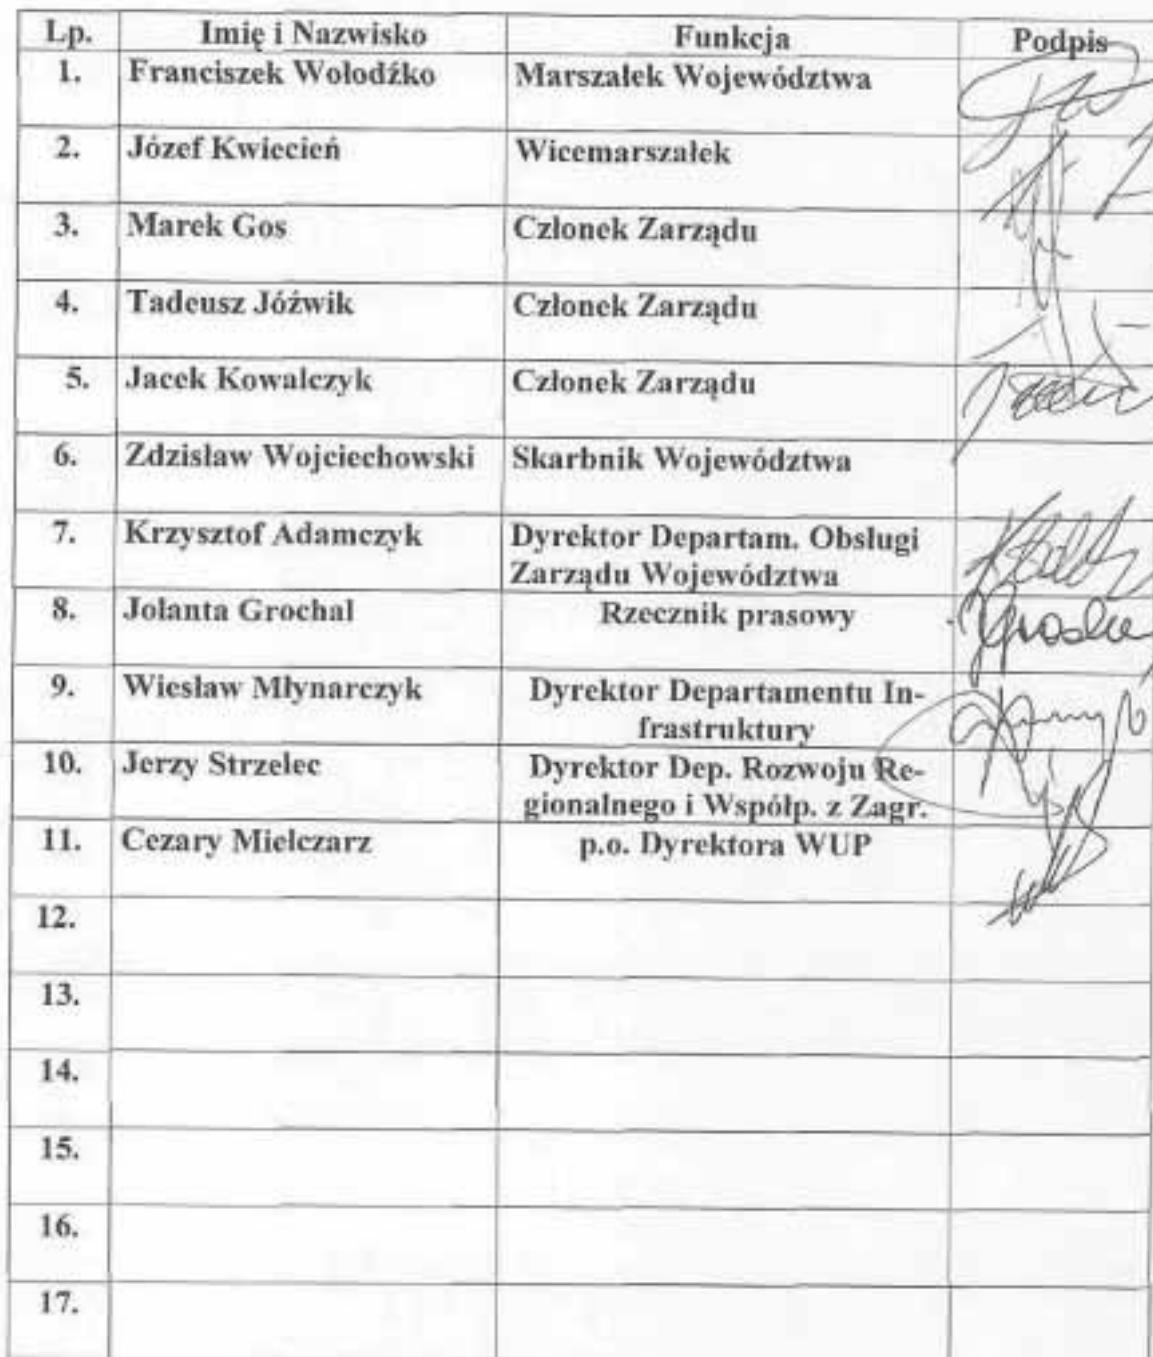 Lp. Imię i Nazwisko Funkcja Podpis
1. Franciszek Wołodźko Marszałek Województwa
2. Józef Kwiecień Wicemarszałek
3. Marek Gos Członek Zarządu
4. Tadeusz Jóźwik Członek Zarządu
5. Jacek Kowalczyk Członek Zarządu
6. Zdzisław Wojciechowski Skarbnik Województwa
7. Krzysztof Adamczyk Dyrektor Departam. Obsługi
Zarządu Województwa
8. Jolanta Grochal Rzecznik prasowy
9. Wiesław Młynarczyk Dyrektor Departamentu In-
frastruktury
10. Jerzy Strzelec Dyrektor Dep. Rozwoju Re-
gionalnego i Współp. z Zagr.
11. Cezary Mielczarz p.o. Dyrektora WUP
12.
13.
14.
15.
16.
17.